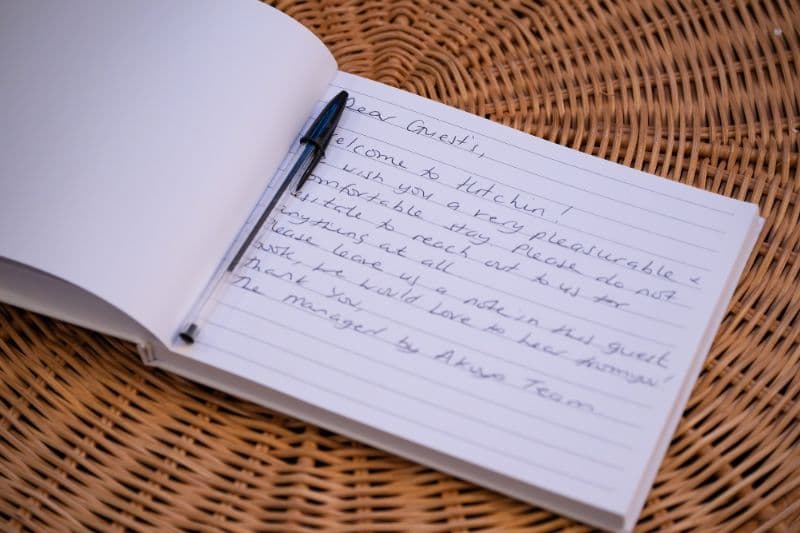 Dear Guest's,
Welcome to Hitchin!
I wish you a very pleasurable &
comfortable stay. Please do not
hesitate to reach out to us for
anything at all
Please leave us a note in this guest
book, we would love to hear from you!
Thank you,
The managed by Akoya Team